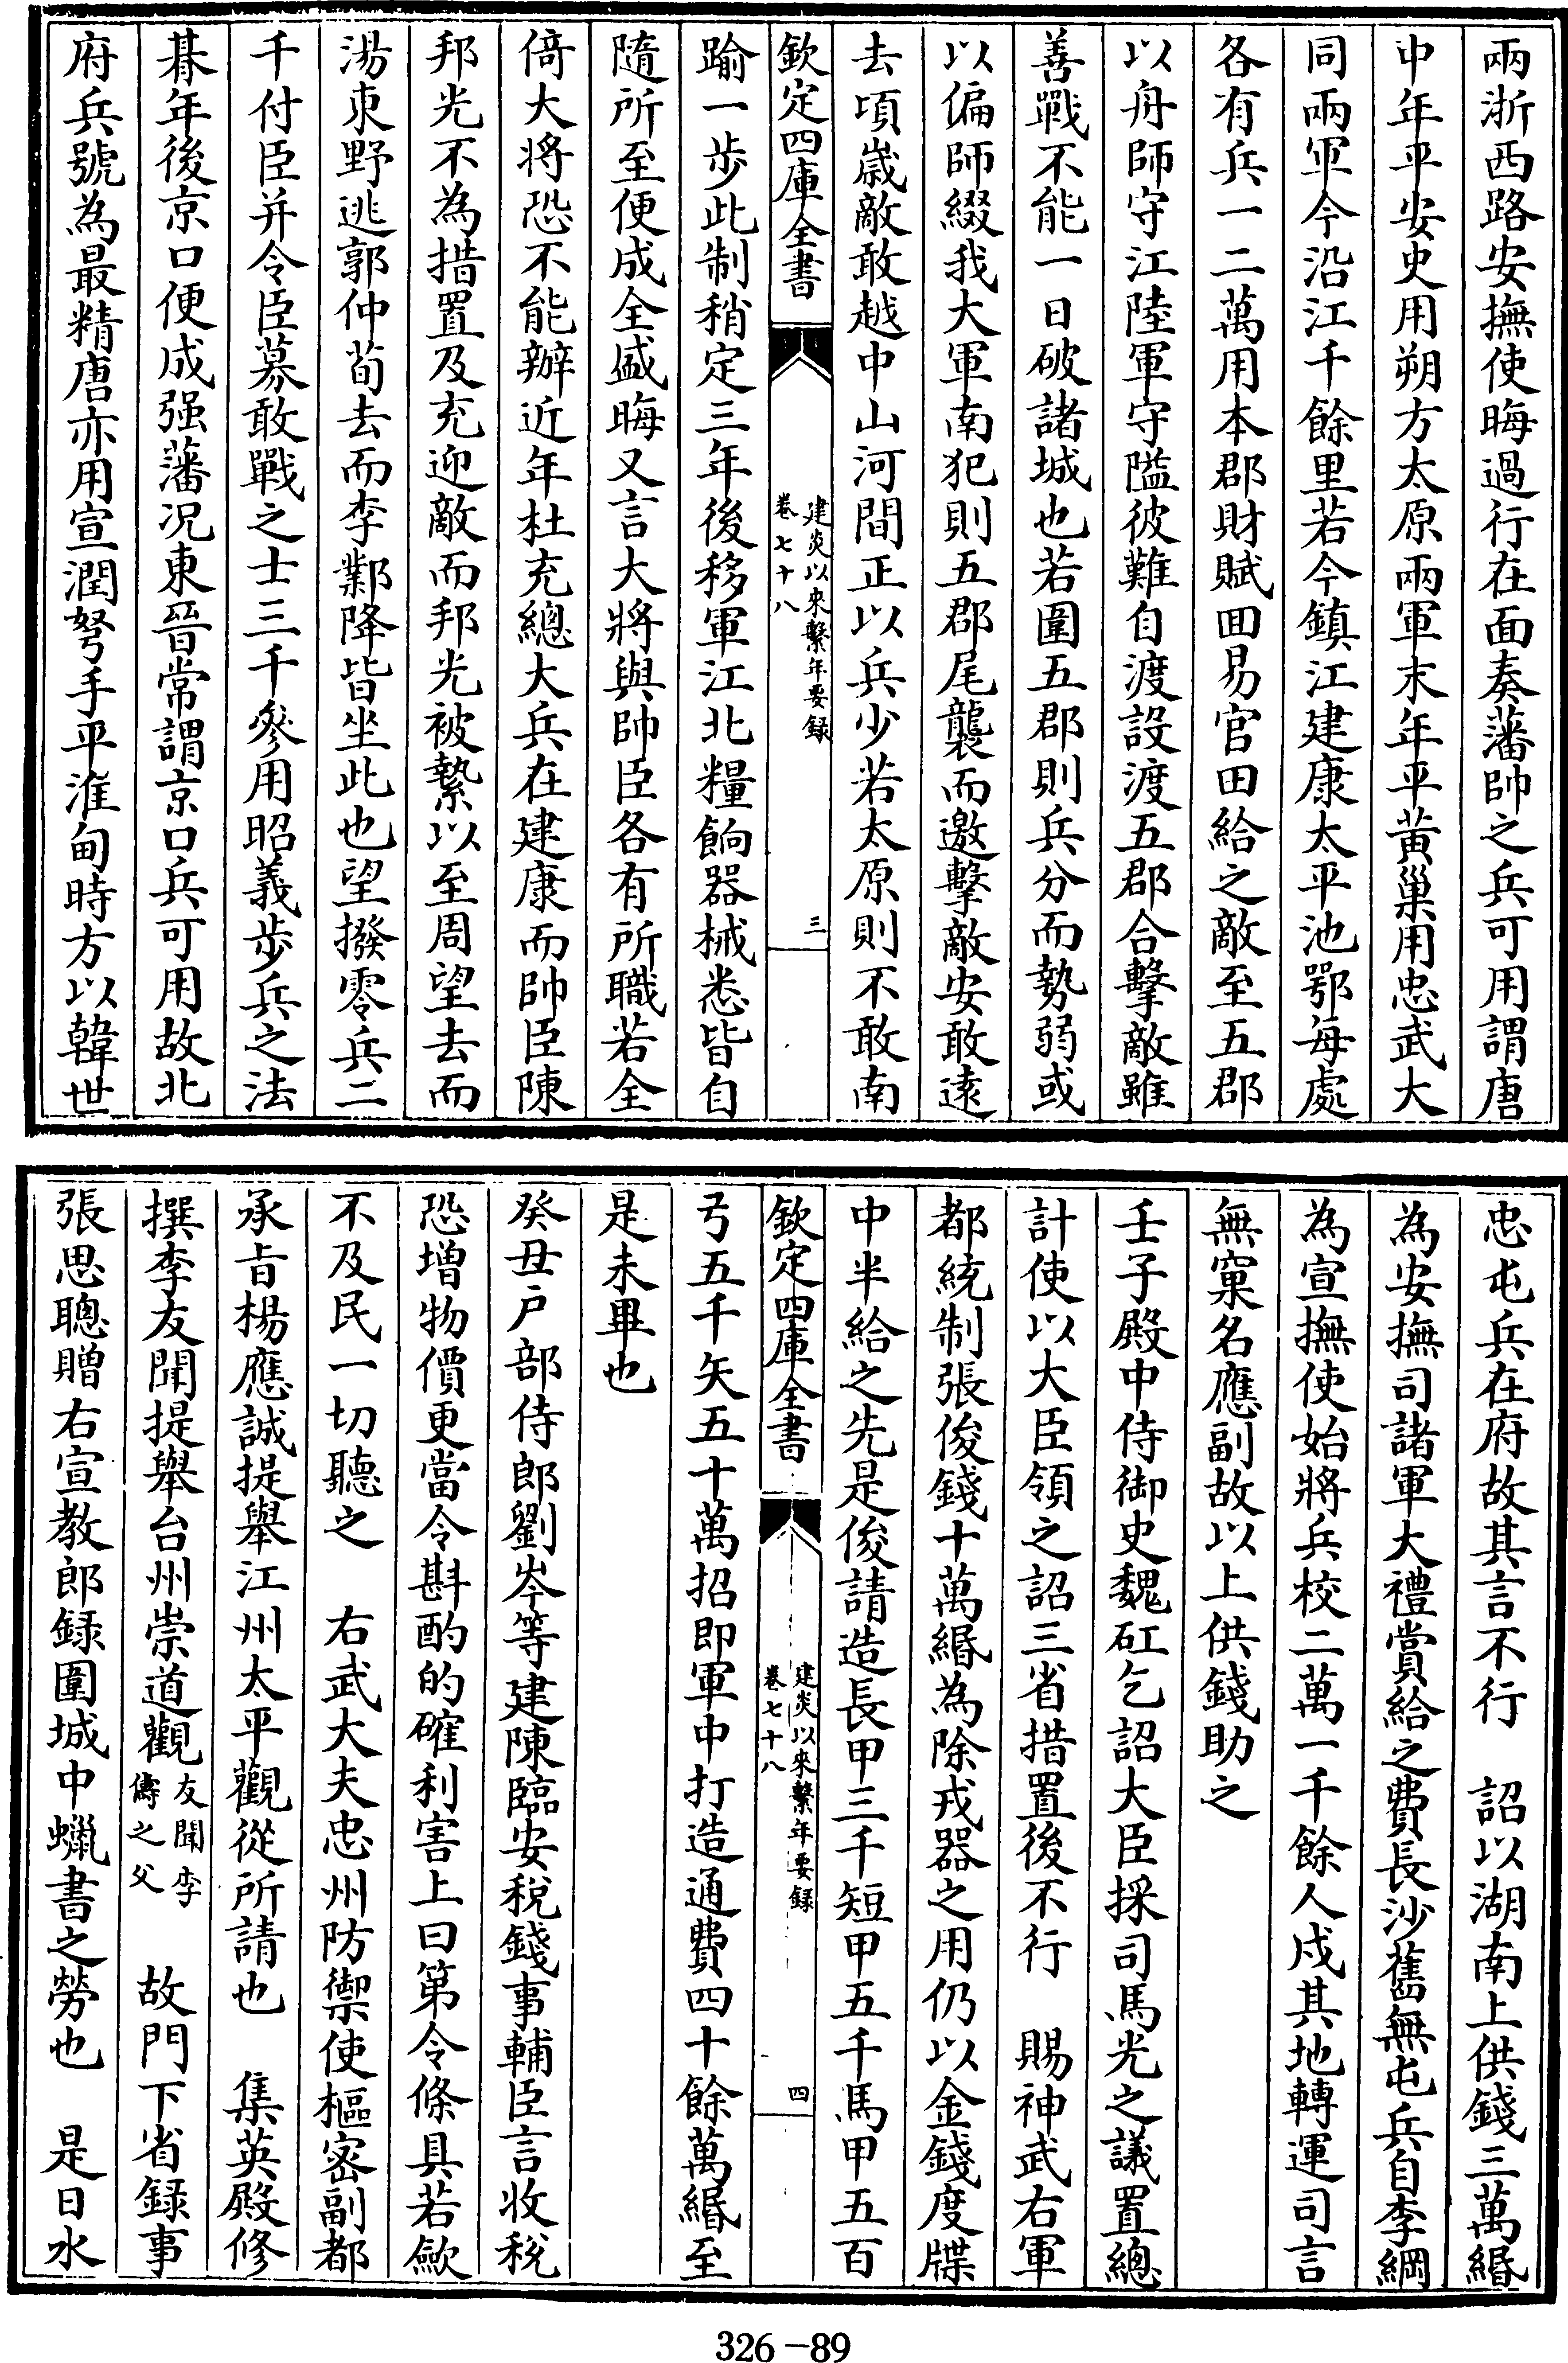 兩浙西路安撫使晦過行在面奏藩帥之兵可用謂唐
中年平安史用朔方太原兩軍末年平黄巢用忠武大
同兩軍今沿江千餘里若今鎮江建康太平池鄂每處
各有兵一二萬用本郡財賦囬易官田給之敵至五郡
以舟師守江陸軍守隘彼難自渡設渡五郡合擊敵雖
善戰不能一日破諸城也若圍五郡則兵分而勢弱或
以偏師綴我大軍南犯則五郡尾襲而邀擊敵安敢遠
去頃歲敵敢越中山河間正以兵少若太原則不敢南
欽定四庫全書
建炎以來繫年要録
卷七十八
三
踰一步此制稍定三年後移軍江北糧餉器械悉皆自
隨所至便成全盛晦又言大將與帥臣各有所職若全
倚大將恐不能辦近年杜充總大兵在建康而帥臣陳
邦光不為措置及充迎敵而邦光被縶以至周望去而
湯東野逃郭仲荀去而李鄴降皆坐此也望撥零兵二
千付臣并令臣募敢戰之士三千參用昭義步兵之法
朞年後京口便成强藩况東晉常謂京口兵可用故北
府兵號為最精唐亦用宣潤弩手平淮甸時方以韓世
忠屯兵在府故其言不行　詔以湖南上供錢三萬緡
為安撫司諸軍大禮賞給之費長沙舊無屯兵自李綱
為宣撫使始將兵校二萬一千餘人戍其地轉運司言
無窠名應副故以上供錢助之
壬子殿中侍御史魏矼乞詔大臣採司馬光之議置總
計使以大臣領之詔三省措置後不行　賜神武右軍
都統制張俊錢十萬緡為除戎器之用仍以金錢度牒
中半給之先是俊請造長甲三千短甲五千馬甲五百
欽定四庫全書
建炎以來繫年要録
卷七十八
四
弓五千矢五十萬招即軍中打造通費四十餘萬緡至
是未畢也
癸丑戸部侍郎劉岑等建陳臨安稅錢事輔臣言收稅
恐增物價更當令斟酌的確利害上曰第令條具若歛
不及民一切聽之　右武大夫忠州防禦使樞密副都
承旨楊應誠提舉江州太平觀從所請也　集英殿修
撰李友聞提舉台州崇道觀友聞李
儔之父　故門下省録事
張思聰贈右宣教郎録圍城中蠟書之勞也　是日水
326-89